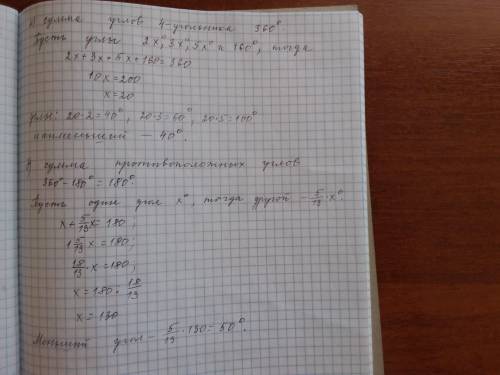 а) сумма углов 4-угольника 360°
Пусть углы 2x°, 3x°, 5x° и 160°, тогда
2x+3x+5x+160=360
10x=200
x=20
углы: 20·2=40°, 20·3=60°, 20·5=100°
наименьший — 40°.
сумма противоположных углов
360°-180°=180°.
Пусть один угол x°, тогда другой — 5/13·x°.
x+5/13x=180;
1 5/13 x=180;
18/13·x=180;
x=180:18/13
x=130
Меньший угол — 5/13·130=50°.